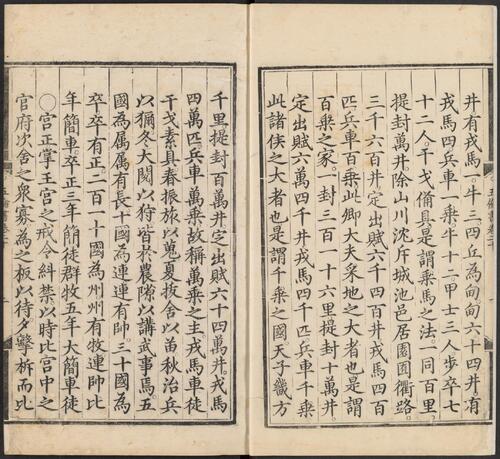 井有戎馬一牛三四丘為甸甸六十四井有
戎馬四兵車一乗牛十二甲士三人步卒七
十二人干戈備具是謂乘馬之法一同百里
提封萬井除山川沈斥城池邑居園囿衢路
三千六百井定出賦六千四百井戎馬四百
匹兵車百乗此卿大夫采地之大者也是謂
百乗之家一封三百一十六里提封十萬井
定出賦六萬四千井戎馬四千匹兵車千乗
此諸侯之大者也是謂千乗之國天子畿方
千里提封百萬井定出賦六十四萬井戎馬
四萬匹兵車萬乗故稱萬乗之主戎馬車徒
干戈素具春振旅以蒐夏拔舍以苗秋治兵
以獮冬大閱以狩皆於農隙以講武事焉五
國為属属有長十國為連連有帥三十國為
卒卒有正二百一十國為州州有牧連帥比
年簡車卒正三年簡徒群牧五年大簡車徒
〇宮正掌王宮之戒令糾禁以時比宮中之
官府次舍之衆寡為之板以待夕擊柝而比